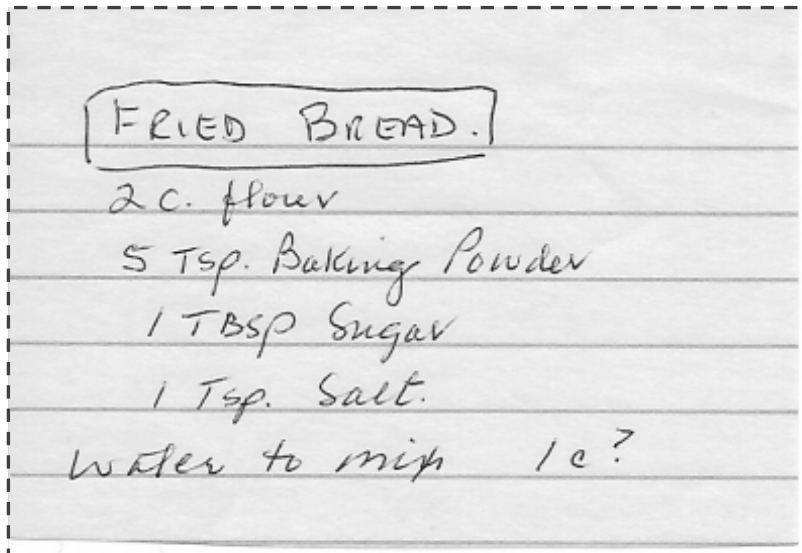 FRIED BREAD.
2 c. flour
5 Tsp. Baking Powder
1 TBSP Sugar
1 Tsp. Salt.
Water to mix 1 c?